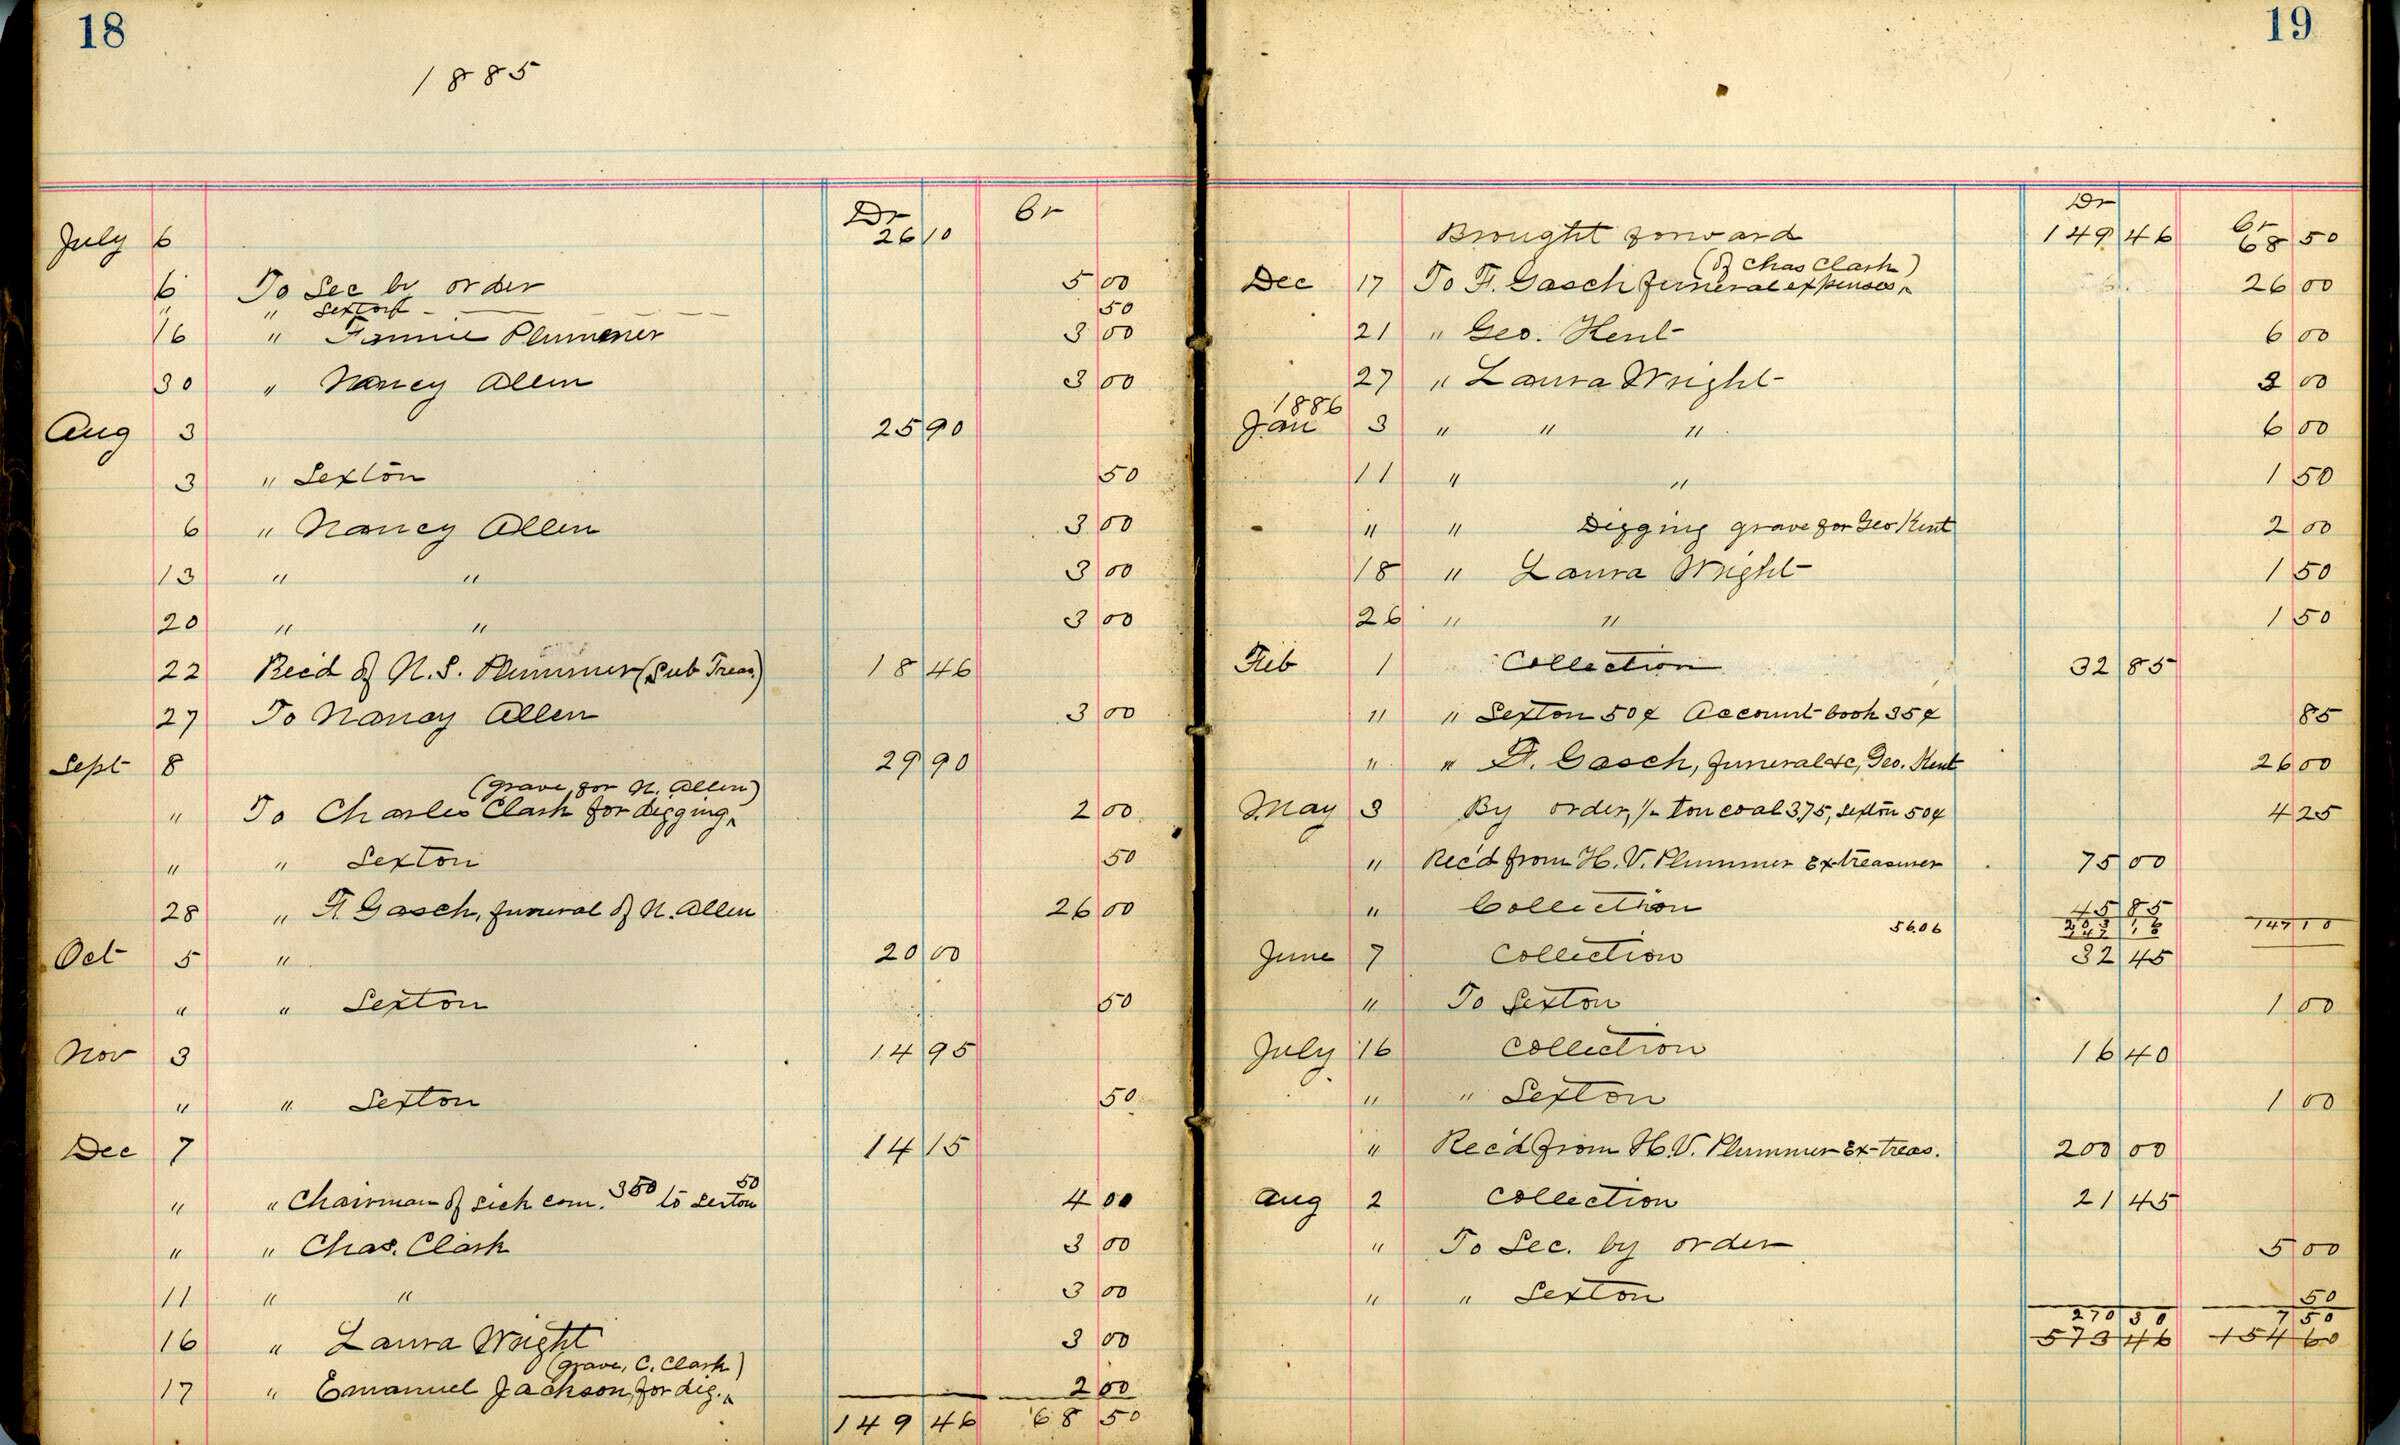 18
1885
Dr Cr
July 6 26 10
6 To Sec by order 5 00
" " Sexton 50
16 " Fannie Plummer 3 00
30 " Nancy Allen 3 00
Aug 3 25 90
3 " Sexton 50
6 " Nancy Allen 3 00
13 " " 3 00
20 " " 3 00
22 Rec'd of N. S. Plummer (Sub Treas.) 18 46
27 To Nancy Allen 3 00
Sept 8 29 90
(grave for N. Allen)
" To Charles Clark for digging ^ 2 00
" " Sexton 50
28 " F. Gasch, funeral of N. Allen 26 00
Oct 5 " 20 00
" " Sexton 50
Nov 3 14 95
" " Sexton 50
Dec 7 14 15
" " Chairman of sick com. 350 to Sexton 50 4 00
" " Chas. Clark 3 00
11 " " 3 00
16 " Laura Wright 3 00
(grave, C. Clark)
17 " Emanuel Jackson, for dig. ^ 2 00
149 46 68 50
19
Dr Cr
Brought forward 149 46 68 50
(of Chas Clark)
Dec 17 To F. Gasch funeral expenses ^ 26 00
21 " Geo. Kent 6 00
27 " Laura Wright 3 00
1886
Jan 3 " " " 6 00
11 " " 1 50
" " Digging grave for Geo Kent 2 00
18 " Laura Wright 1 50
26 " " 1 50
Feb 1 Collection 32 85
" " Sexton 50¢ Account book 35¢ 85
" " F. Gasch, funeral &c, Geo. Kent 26 00
May 3 By order, ½ ton coal 3.75, Sexton 50¢ 4 25
" Rec'd from H. V. Plummer Ex-treasurer 75 00
" Collection 45 85
56.06 147 10
June 7 Collection 32 45
" To Sexton 1 00
July 16 Collection 16 40
" " Sexton 1 00
" Rec'd from H. V. Plummer Ex-treas. 200 00
Aug 2 Collection 21 45
" To Sec. by order 5 00
" " Sexton 50
270 30 7 50
573 46 154 60